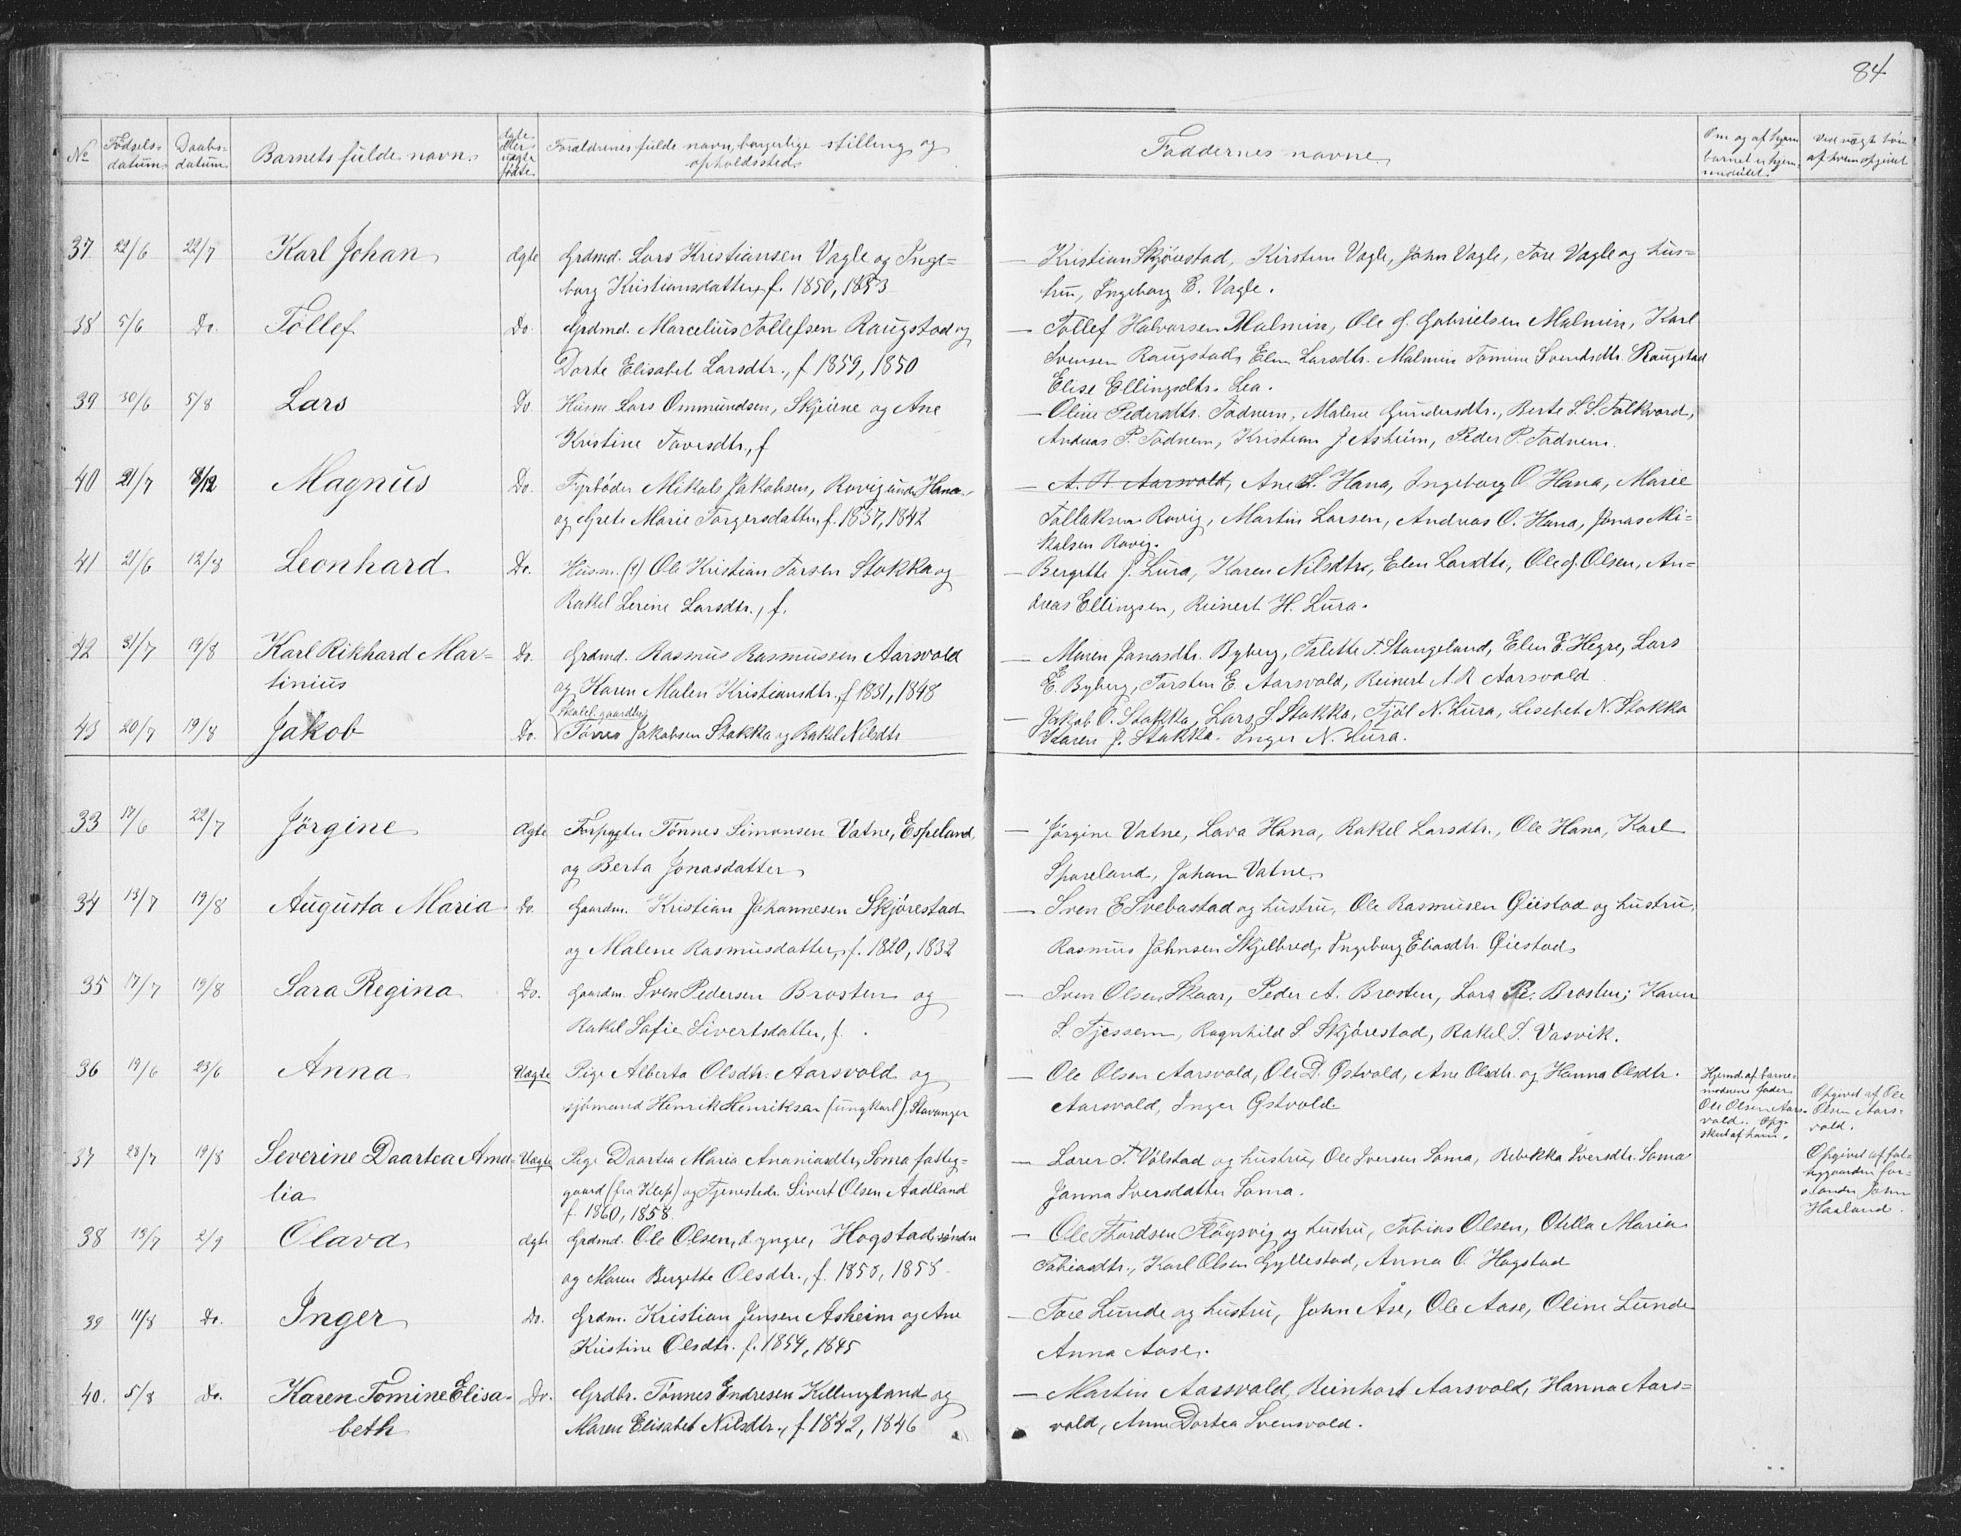 84
No Fødsels-datum Daabs-datum Barnets fulde navn ægte eller uægte født Forældrenes fulde navn, borgerlige stilling og opholdssted Faddernes navne Om og af hvem barnet er hjemmedøbt Ved uægte børn af hvem opgivet
37 22/6 22/7 Karl Johan ægte Grdmd. Lars Kristiansen Vagle og Inge=
borg Kristiansdatter, f. 1850, 1853
— Kristian Skjørestad, Kirsten Vagle, John Vagle, Tore Vagle og hus=
tru, Ingeborg E. Vagle.
38 5/6 Do. Tollef Do. Grdmd. Marcelius Tollefsen Raugstad og
Dorte Elisabet Larsdtr., f 1859, 1850
— Tollef Halvorsen Malmin, Ole G. Gabrielsen Malmin, Karl
Svensen Raugstad, Elen Larsdtr. Malmin Tomine Svendsdtr. Raugstad
Elise Ellingsdtr. Lea.
39 30/6 5/8 Lars Do. Husm Lars Ommundsen, Skjeiene og Ane
Kristine Taresdtr., f
— Oline Pedersdtr. Todnem, Malene Gundersdtr., Berte L. S. Folkvord,
Andreas P. Todnem, Kristian J Asheim, Peder P. Todnem.
40 21/7 8/12 Magnus Do. Fyrbøder Mikal Jakobsen, Rovig under Hana
og Grete Marie Torgersdatter, f. 1837, 1842
— A. R. Aarsvold, Ane S. Hana, Ingeborg O Hana, Marie
Tollaksen Rovig, Martin Larsen, Andreas O. Hana, Jonas Mi=
kalsen Rovig.
41 21/6 12/8 Leonhard Do. Husm. (?) Ole Kristian Torsen Stokka og
Rakel Serine Larsdtr., f.
— Bergitte J. Lura, Karen Nilsdtr, Elen Larsdtr, Ole J. Olsen, An=
dreas Ellingsen, Reinert H. Lura.
42 31/7 19/8 Karl Rikhard Mar=
tinius
Do. Grdmd. Rasmus Rasmussen Aarsvold
og Karen Malen Kristiansdtr., f 1831, 1848
— Maren Jonasdtr. Byberg, Talette T. Stangeland, Elen E. Hegre, Lars
E. Byberg, Torsten E. Aarsvold, Reinert A. R Aarsvold
43 20/7 19/8 Jakob Do. gaardbr.
Tønnes Jakobsen Stokka og Rakel Nilsdtr
— Jakob O. Stokka, Lars J Stokka, Tjøl N. Lura, Lisebet N. Stokka
Maren J. Stokka. Inger N. Lura.
33 17/6 22/7 Jørgine ægte Forpagter Tønnes Simonsen Vatne, Espeland,
og Berta Jonasdatter
— Jørgine Vatne, Lava Hana, Rakel Larsdtr., Ole Hana, Karl
Spaseland, Johan Vatne
34 13/7 19/8 Augusta Maria Do. Gaardm. Kristian Johannesen Skjørestad
og Malene Rasmusdatter, f. 1820, 1832
— Sven E Svebastad og hustru, Ole Rasmusen Øiestad og hustru,
Rasmus Johnsen Skjelbred, Ingeborg Eliasdtr. Øiestad
35 17/7 19/8 Sara Regina Do. Gaardm. Sven Pedersen Brosten og
Rakel Sofie Sivertsdatter, f.
— Sven Olsen Skaar, Peder A. Brosten, Lars P. Brosten, Karen
S. Tjessem, Ragnhild S Skjørestad, Rakel S. Vasvik.
36 19/6 23/6 Anna Uægte Pige Alberta Olsdtr. Aarsvold og
sjømand Henrik Henriksen (ungkarl) f. Stavanger
— Ole Olsen Aarsvold, Ole D. Østvold, Ane Olsdtr. og Hanna Olsdtr.
Aarsvold, Inger Østvold
Hjemd. af barne=
moderens fader
Ole Olsen Aars-
vold.
Opgivet af Ole
Olsen Aars-
vold.
37 28/7 19/8 Severine Daartea Ama-
lia
Uægte Pige Daartea Maria Ananiasdtr, Soma fattig-
gaard (fra Klep) og Tjenestedr. Sivert Olsen Aadland
f. 1860, 1858.
— Lærer T. Vølstad og hustru, Ole Iversen Soma, Rebekka Iversdtr. Soma
Janna Iversdatter Soma.
Opgivet af fat-
tiggaardens for-
stander John
Haaland.
38 13/7 2/9 Olava ægte Grdmd. Ole Olsen, d. yngre, Hogstad søndre
og Maren Bergitte Olsdtr., f. 1850, 1858
— Ole Thordsen Fløgsvig og hustru, Tobias Olsen, Otilla Maria
Tobiasdtr., Karl Olsen Gyllestad, Anna O. Hogstad
39 11/8 Do. Inger Do. Grdm. Kristian Jensen Asheim og Ane
Kristine Olsdtr. f. 1854, 1845
— Tore Lunde og hustru, John Ase, Ole Aase, Oline Lunde
Anna Aase.
40. 5/8 Do. Karen Tomine Elisa-
beth
Do. Grdbr. Tønnes Endresen Killingland og
Maren Elisabet Nilsdtr., f 1842, 1846
— Martin Aarsvold, Reinhart Aarsvold, Hanna Aars=
vold, Anne Dortea Svensvold.